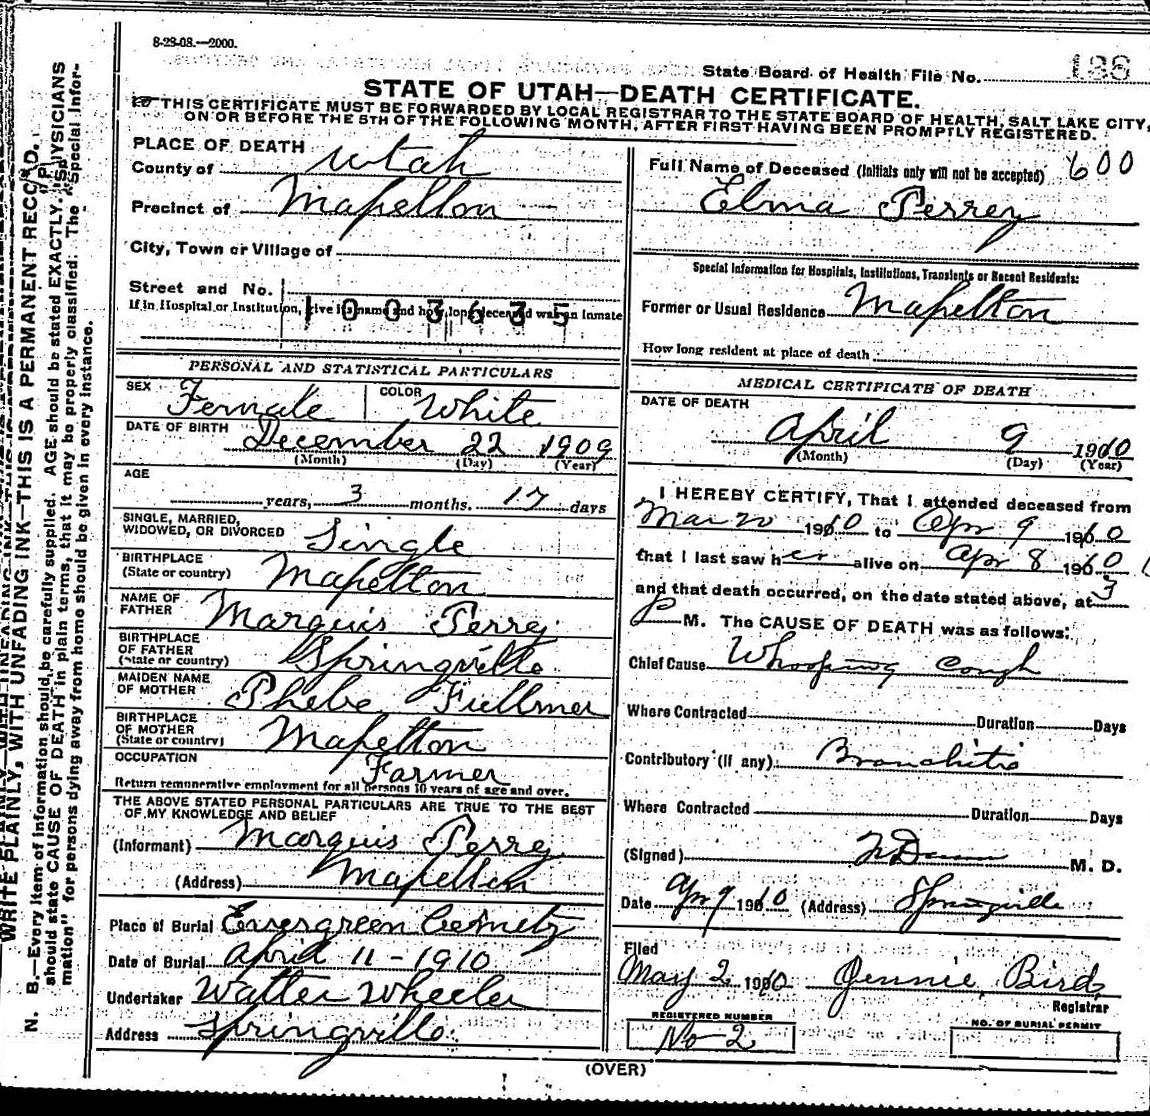 8-28-08.—2000.
State Board of Health File No. 136
STATE OF UTAH—DEATH CERTIFICATE.
THIS CERTIFICATE MUST BE FORWARDED BY LOCAL REGISTRAR TO THE STATE BOARD OF HEALTH, SALT LAKE CITY,
ON OR BEFORE THE 5TH OF THE FOLLOWING MONTH, AFTER FIRST HAVING BEEN PROMPTLY REGISTERED.
PLACE OF DEATH
County of Utah
Precinct of Mapelton
City, Town or Village of
Street and No.
If in Hospital or Institution, give its name and how long deceased was an inmate
1003635
PERSONAL AND STATISTICAL PARTICULARS
SEX Female COLOR White
DATE OF BIRTH December 22 1909
(Month) (Day) (Year)
AGE
years, 3 months. 17 days
SINGLE, MARRIED,
WIDOWED, OR DIVORCED Single
BIRTHPLACE
(State or country) Mapelton
NAME OF
FATHER Marquis Perry
BIRTHPLACE
OF FATHER
(State or country) Springville
MAIDEN NAME
OF MOTHER Phebe Fullmer
BIRTHPLACE
OF MOTHER
(State or country) Mapelton
OCCUPATION Farmer
Return remunerative employment for all persons 10 years of age and over.
THE ABOVE STATED PERSONAL PARTICULARS ARE TRUE TO THE BEST
OF MY KNOWLEDGE AND BELIEF
(Informant) Marquis Perry
(Address) Mapelton
Place of Burial Evergreen Cemetry
Date of Burial April 11-1910
Undertaker Walter Wheeler
Address Springville
Full Name of Deceased (Initials only will not be accepted) 600
Elma Perrey
Special Information for Hospitals, Institutions, Transients or Recent Residents:
Former or Usual Residence Mapelton
How long resident at place of death
MEDICAL CERTIFICATE OF DEATH
DATE OF DEATH
April 9 1910
(Month) (Day) (Year)
I HEREBY CERTIFY, That I attended deceased from
Mar 20 1910 to Apr 9 1910
that I last saw her alive on Apr 8 1910
and that death occurred, on the date stated above, at 3
P M. The CAUSE OF DEATH was as follows:
Chief Cause Whooping Cough
Where Contracted Duration Days
Contributory (if any) Bronchitis
Where Contracted Duration Days
(Signed) M. D.
Date Apr 9 1910 (Address) Springville
Filed
May 2 1910 Jennie Bird
Registrar
REGISTERED NUMBER
No-2
NO. OF BURIAL PERMIT
(OVER)
WRITE PLAINLY, WITH UNFADING INK—THIS IS A PERMANENT RECORD.
N. B.—Every item of information should be carefully supplied. AGE should be stated EXACTLY. PHYSICIANS
should state CAUSE OF DEATH in plain terms, that it may be properly classified. The "Special Infor-
mation" for persons dying away from home should be given in every instance.